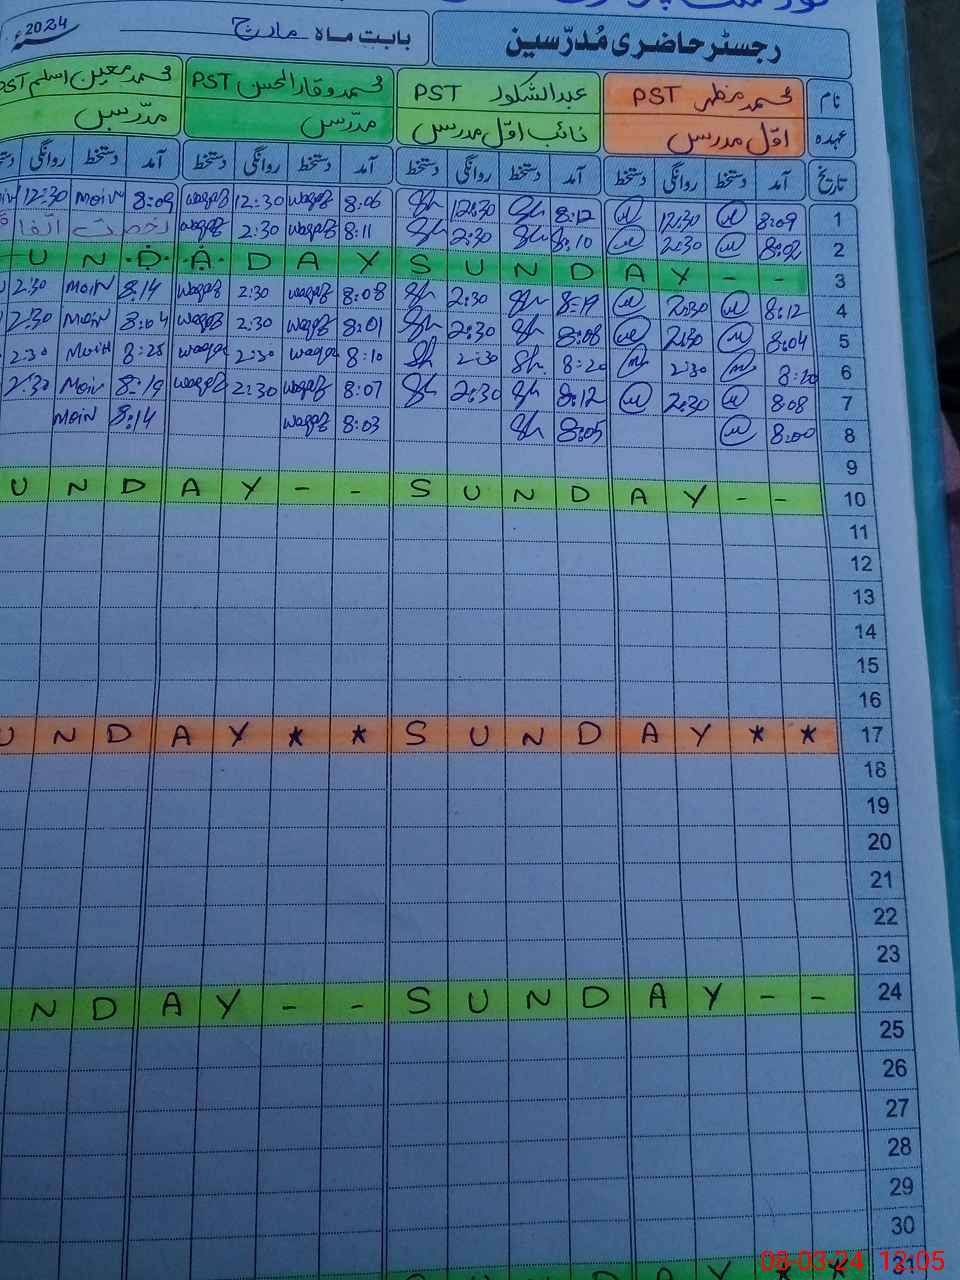 رجسٹر حاضری مُدرّسین بابت ماہ مارچ 2024ء
نام محمد مظہر PST عبدالشکور PST محمد وقار الحسن PST محمد معین اسلم PST
عہدہ اوّل مدرس نائب اوّل مدرس مدرّس مدرّس
تاریخ آمد دستخط روانگی دستخط آمد دستخط روانگی دستخط آمد دستخط روانگی دستخط آمد دستخط روانگی
1 8:09 12:30 8:12 Sh 12:30 Sh 8:06 waqas 12:30 waqas 8:09 Moin 12:30
2 8:02 2:30 8:10 Sh 2:30 Sh 8:11 waqas 2:30 waqas رخصت اتفا
U N D A D A Y S U N D A Y - - 3
4 8:12 2:30 8:19 Sh 2:30 Sh 8:08 waqas 2:30 waqas 8:14 Moin 2:30
5 8:04 2:30 8:08 Sh 2:30 Sh 8:01 waqas 2:30 waqas 8:04 Moin 2:30
6 8:20 2:30 8:20 Sh 2:30 Sh 8:10 waqas 2:30 waqas 8:25 Moin 2:30
7 8:08 2:30 8:12 Sh 2:30 Sh 8:07 waqas 2:30 waqas 8:19 Moin 2:30
8 8:00 8:05 Sh 8:03 waqas 8:14 Moin
9
U N D A Y - - S U N D A Y - - 10
11
12
13
14
15
16
U N D A Y * * S U N D A Y * * 17
18
19
20
21
22
23
N D A Y - - S U N D A Y - - 24
25
26
27
28
29
30
U N D A Y * * 31
08-03-24 12:05